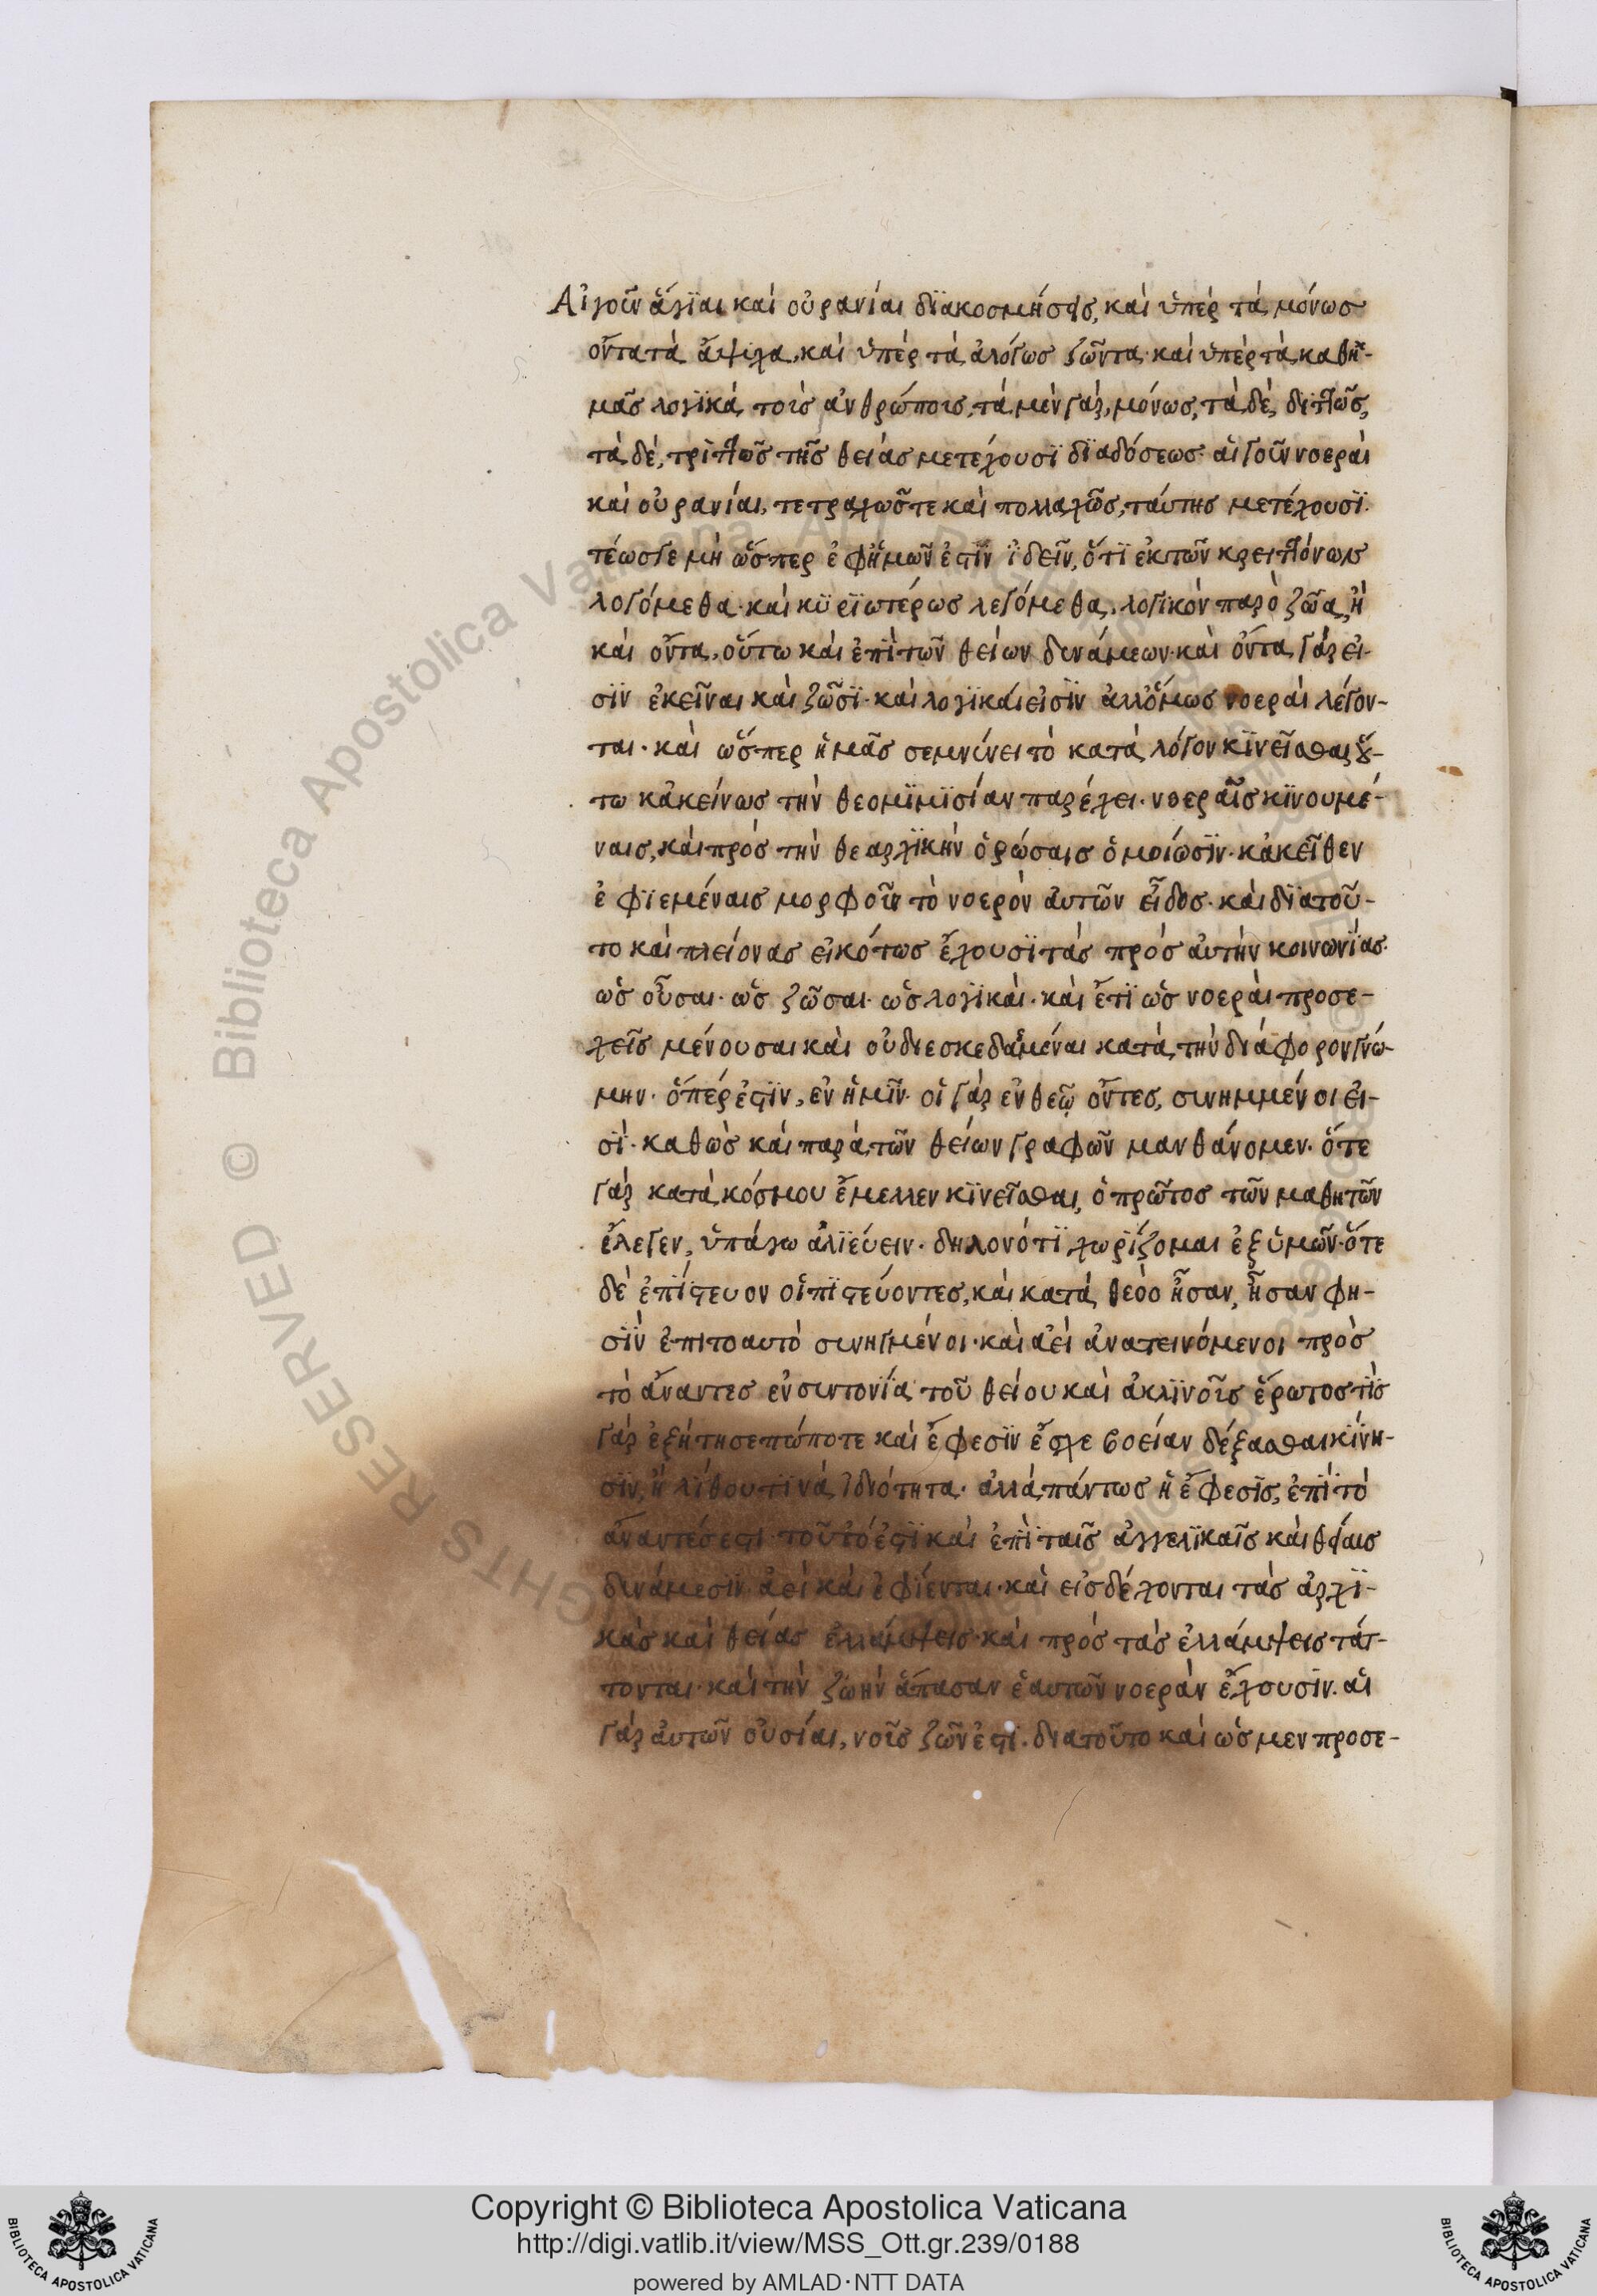 Αἱ γοῦν ἅγϊαι καὶ οὐράνίαι δϊακοσμήσεις, καὶ ὑπὲρ τὰ μόνωσ
ὄντα τὰ ἄψυχα, καὶ ὑπὲρ τὰ ἀλόγωσ ζῶντα· καὶ ὑπὲρ τὰ καθη-
μᾶσ λογϊκὰ τοῖσ ἀνθρώποισ, τὰ μὲν γὰρ, μόνωσ, τὰ δὲ, διττῶσ,
τὰ δὲ, τρϊττῶσ τῆσ θείασ μετέχουσϊ δϊαδόσεωσ· αἱ γοῦν νοεραὶ
καὶ οὐράνίαι, τετραχῶστε καὶ πολλαχῶσ, ταύτησ μετέχουσϊ.
τέωσγε μὴ ὥσπερ ἐφἡμῶν ἐστϊν ἰδεῖν, ὅτϊ ἐκ τῶν κρειττόνων
λογόμεθα· καὶ κϋρϊωτέρωσ λεγόμεθα, λογϊκὸν παρὸ ζῶα, ἢ
καὶ ὄντα, οὕτω καὶ ἐπὶ τῶν θείων δυνάμεων· καὶ ὄντα γάρ εἰ-
σϊν ἐκεῖναι καὶ ζῶσϊ· καὶ λογϊκαί εἰσϊν ἀλλ᾽ὅμωσ νοεραὶ λέγον-
ται· καὶ ὥσπερ ἡμᾶσ σεμνύνει τὸ κατὰ λόγον κϊνεῖσθαι οὕ-
τω κἀκείνωσ τὴν θεομϊμϊσίαν παρέχει· νοεραῖσ κϊνουμέ-
ναισ, καὶ πρὸσ τὴν θεαρχϊκὴν ὁρώσαισ ὁμοίωσϊν· κἀκεῖθεν
ἐφϊεμέναισ μορφοῦν τὸ νοερὸν αὐτῶν εἶδοσ· καὶ δϊατοῦ-
το καὶ πλείονασ εἰκότωσ ἔχουσϊ τὰσ πρὸσ αὐτὴν κοινωνίασ.
ὡσ οὖσαι· ὡσ ζῶσαι· ὡσ λογϊκαὶ· καὶ ἔτϊ ὡσ νοεραὶ προσε-
χεῖσ μένουσαι καὶ οὐ διεσκεδαμέναι κατὰ τὴν διάφορον γνώ-
μην· ὅπέρ ἐστϊν, ἐν ἡμῖν· οἱ γὰρ ἐν θεῷ ὄντεσ, συνημμένοι εἰ-
σὶ· καθὼσ καὶ παρὰ τῶν θείων γραφῶν μανθάνομεν· ὅτε
γὰρ κατὰ κόσμου ἔμελλεν κϊνεῖσθαι, ὁ πρῶτοσ τῶν μαθητῶν
ἔλεγεν, ὑπάγω ἁλϊεύειν· δηλονότϊ χωρίζομαι ἐξ ὑμῶν· ὅτε
δὲ ἐπίστευον οἱ πϊστεύοντεσ, καὶ κατὰ θεὸο ἦσαν, ἦσαν φη-
σϊν ἐπιτοαυτὸ συνηγμένοι· καὶ ἀεὶ ἀνατεινόμενοι πρὸσ
τὸ ἄναντεσ ἐν συντονίᾳ τοῦ θείου καὶ ἀκλϊνοῖσ ἔρωτοσ τίσ
γὰρ ἐξήτησε πώποτε καὶ ἔφεσϊν ἔσχε βοείαν δέξασθαι κίνη-
σϊν, ἢ λίθου τϊνὰ ἰδιότητα· ἀλλὰ πάντωσ ἡ ἔφεσϊσ, ἐπὶ τὸ
ἄναντέσ ἐστι· τοῦτό ἐστϊ καὶ ἐπὶ ταῖσ ἀγγελϊκαῖσ καὶ θείαισ
δυνάμεσϊν· ἀεὶ καὶ ἐφίενται· καὶ εἰσδέχονται τὰσ ἀρχϊ-
κὰσ καὶ θείασ ἐλλάμψεισ· καὶ πρὸσ τὰσ ἐλλάμψεισ τάτ-
τονται· καὶ τὴν ζωὴν ἅπασαν ἑαυτῶν νοερὰν ἔχουσϊν. αἱ
γὰρ αὐτῶν οὐσίαι, νοῦσ ζῶν ἐστϊ. διατοῦτο καὶ ὡσ μεν προσε-
Copyright © Biblioteca Apostolica Vaticana
http://digi.vatlib.it/view/MSS_Ott.gr.239/0188
powered by AMLAD·NTT DATA